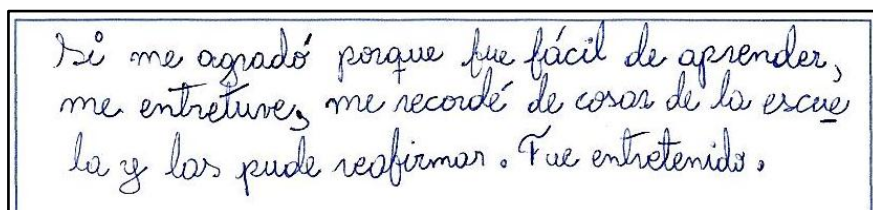 Si me agradó porque fue fácil de aprender,
me entretuve, me recordé de cosas de la escue
la y las pude reafirmar. Fue entretenido.